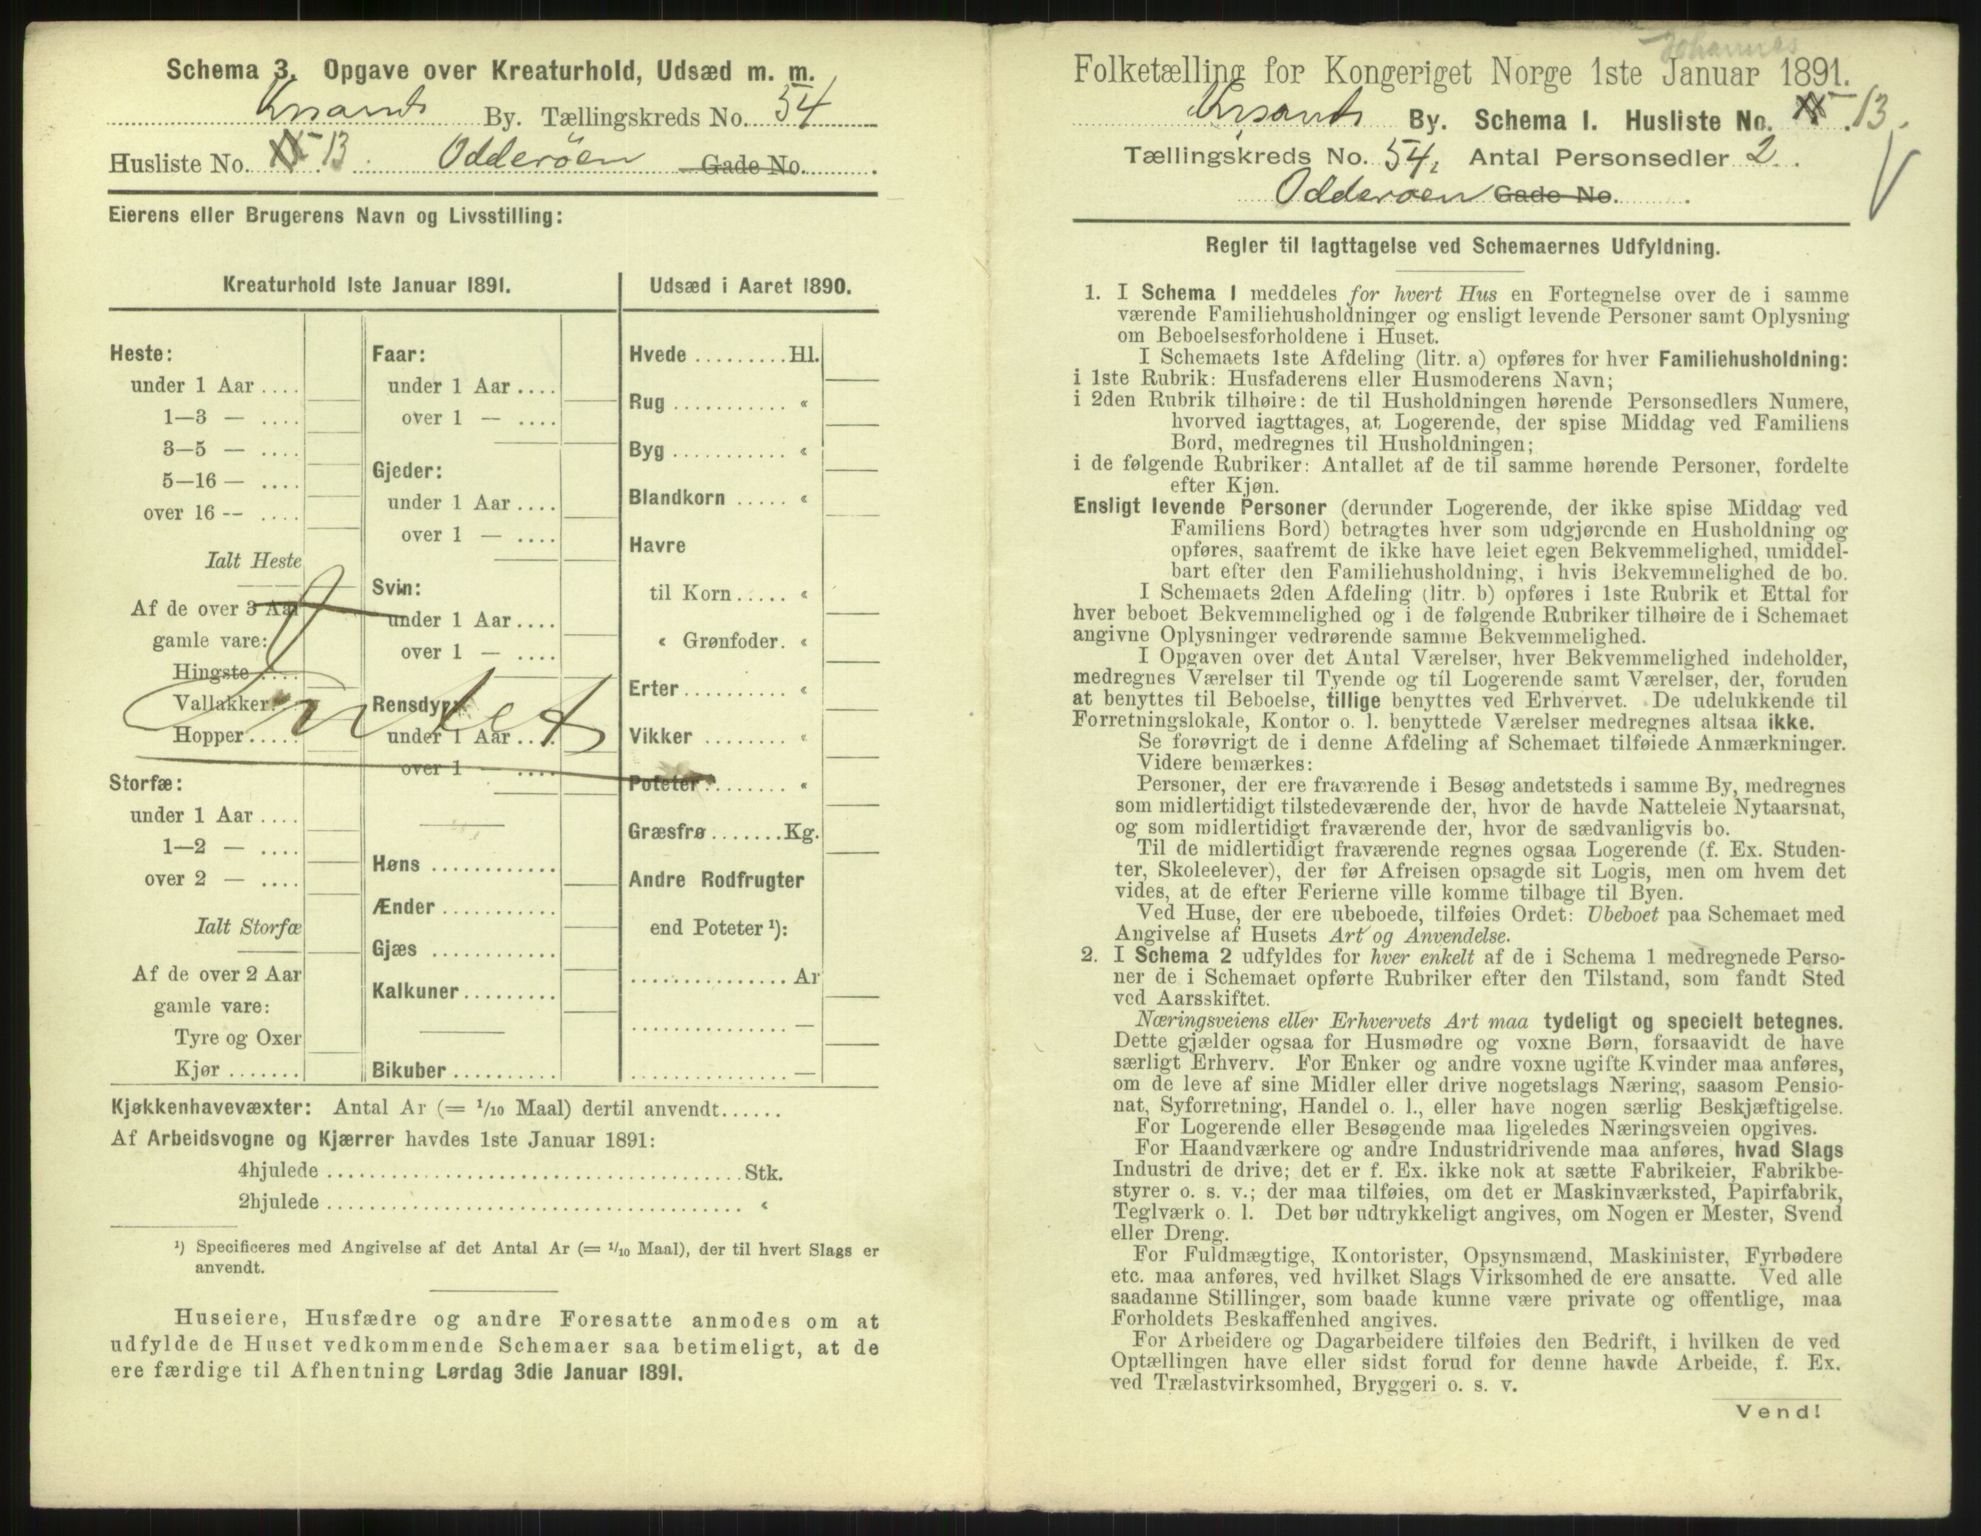 Schema 3. Opgave over Kreaturhold, Udsæd m. m.
Krsands By. Tællingskreds No. 54
Husliste No. 13. Odderøen Gade No.
Eierens eller Brugerens Navn og Livsstilling:
Kreaturhold 1ste Januar 1891.
Heste:
under 1 Aar ....
1—3 — ....
3—5 — ....
5—16 — ....
over 16 -- ....
Ialt Heste
Af de over 3 Aar
gamle vare:
Hingste ....
Vallakker ...
Hopper .....
Storfæ:
under 1 Aar ....
1—2 — ....
over 2 — ....
Ialt Storfæ
Af de over 2 Aar
gamle vare:
Tyre og Oxer
Kjør .......
Faar:
under 1 Aar ....
over 1 — ....
Gjeder:
under 1 Aar ....
over 1 — ....
Svin:
under 1 Aar ....
over 1 — ....
Rensdyr:
under 1 Aar ....
over 1 — ....
Høns ............
Ænder ...........
Gjæs ............
Kalkuner .........
Bikuber ..........
Intet
Udsæd i Aaret 1890.
Hvede ......... Hl.
Rug ........... «
Byg ........... «
Blandkorn ..... «
Havre
til Korn ..... «
« Grønfoder. «
Erter .......... «
Vikker ........ «
Poteter ........ «
Græsfrø ....... Kg.
Andre Rodfrugter
end Poteter ¹):
............... Ar
............... —
............... —
Kjøkkenhavevæxter: Antal Ar (= 1/10 Maal) dertil anvendt......
Af Arbeidsvogne og Kjærrer havdes 1ste Januar 1891:
4hjulede ..................................... Stk.
2hjulede ..................................... «
¹) Specificeres med Angivelse af det Antal Ar (= 1/10 Maal), der til hvert Slags er
anvendt.
Huseiere, Husfædre og andre Foresatte anmodes om at
udfylde de Huset vedkommende Schemaer saa betimeligt, at de
ere færdige til Afhentning Lørdag 3die Januar 1891.
Johannes
Folketælling for Kongeriget Norge 1ste Januar 1891.
Krsands By. Schema I. Husliste No. 13.
Tællingskreds No. 54, Antal Personsedler 2.
Odderøen Gade No.
Regler til Iagttagelse ved Schemaernes Udfyldning.
1. I Schema I meddeles for hvert Hus en Fortegnelse over de i samme
værende Familiehusholdninger og ensligt levende Personer samt Oplysning
om Beboelsesforholdene i Huset.
I Schemaets 1ste Afdeling (litr. a) opføres for hver Familiehusholdning:
i 1ste Rubrik: Husfaderens eller Husmoderens Navn;
i 2den Rubrik tilhøire: de til Husholdningen hørende Personsedlers Numere,
hvorved iagttages, at Logerende, der spise Middag ved Familiens
Bord, medregnes til Husholdningen;
i de følgende Rubriker: Antallet af de til samme hørende Personer, fordelte
efter Kjøn.
Ensligt levende Personer (derunder Logerende, der ikke spise Middag ved
Familiens Bord) betragtes hver som udgjørende en Husholdning og
opføres, saafremt de ikke have leiet egen Bekvemmelighed, umiddel-
bart efter den Familiehusholdning, i hvis Bekvemmelighed de bo.
I Schemaets 2den Afdeling (litr. b) opføres i 1ste Rubrik et Ettal for
hver beboet Bekvemmelighed og i de følgende Rubriker tilhøire de i Schemaet
angivne Oplysninger vedrørende samme Bekvemmelighed.
I Opgaven over det Antal Værelser, hver Bekvemmelighed indeholder,
medregnes Værelser til Tyende og til Logerende samt Værelser, der, foruden
at benyttes til Beboelse, tillige benyttes ved Erhvervet. De udelukkende til
Forretningslokale, Kontor o. l. benyttede Værelser medregnes altsaa ikke.
Se forøvrigt de i denne Afdeling af Schemaet tilføiede Anmærkninger.
Videre bemærkes:
Personer, der ere fraværende i Besøg andetsteds i samme By, medregnes
som midlertidigt tilstedeværende der, hvor de havde Natteleie Nytaarsnat,
og som midlertidigt fraværende der, hvor de sædvanligvis bo.
Til de midlertidigt fraværende regnes ogsaa Logerende (f. Ex. Studen-
ter, Skoleelever), der før Afreisen opsagde sit Logis, men om hvem det
vides, at de efter Ferierne ville komme tilbage til Byen.
Ved Huse, der ere ubeboede, tilføies Ordet: Ubeboet paa Schemaet med
Angivelse af Husets Art og Anvendelse.
2. I Schema 2 udfyldes for hver enkelt af de i Schema 1 medregnede Perso-
ner de i Schemaet opførte Rubriker efter den Tilstand, som fandt Sted
ved Aarsskiftet.
Næringsveiens eller Erhvervets Art maa tydeligt og specielt betegnes.
Dette gjælder ogsaa for Husmødre og voxne Børn, forsaavidt de have
særligt Erhverv. For Enker og andre voxne ugifte Kvinder maa anføres,
om de leve af sine Midler eller drive nogetslags Næring, saasom Pensio-
nat, Syforretning, Handel o. l., eller have nogen særlig Beskjæftigelse.
For Logerende eller Besøgende maa ligeledes Næringsveien opgives.
For Haandværkere og andre Industridrivende maa anføres, hvad Slags
Industri de drive; det er f. Ex. ikke nok at sætte Fabrikeier, Fabrikbe-
styrer o. s. v.; der maa tilføies, om det er Maskinværksted, Papirfabrik,
Teglværk o. l. Det bør udtrykkeligt angives, om Nogen er Mester, Svend
eller Dreng.
For Fuldmægtige, Kontorister, Opsynsmænd, Maskinister, Fyrbødere
etc. maa anføres, ved hvilket Slags Virksomhed de ere ansatte. Ved alle
saadanne Stillinger, som baade kunne være private og offentlige, maa
Forholdets Beskaffenhed angives.
For Arbeidere og Dagarbeidere tilføies den Bedrift, i hvilken de ved
Optællingen have eller sidst forud for denne havde Arbeide, f. Ex.
ved Trælastvirksomhed, Bryggeri o. s. v.
Vend!